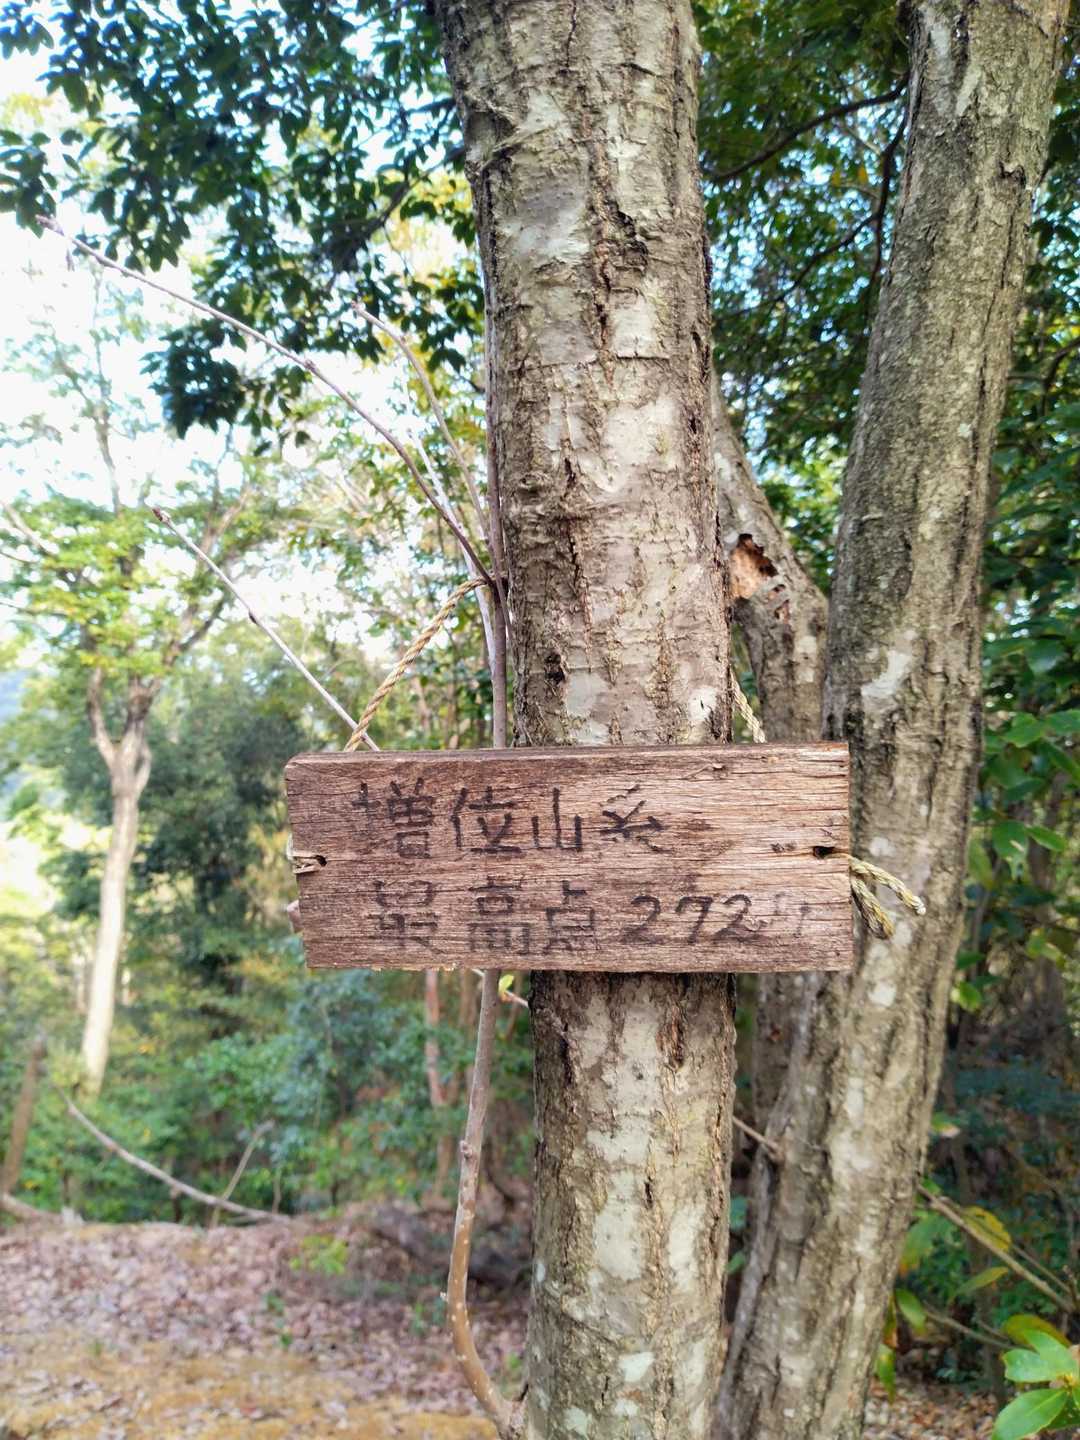 増位山系
最高点 272